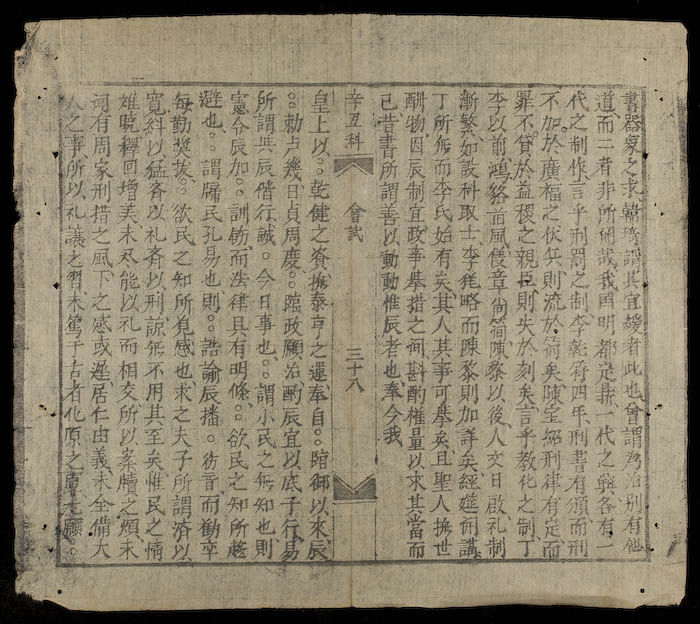 書器爰之求蕭琦謂其宜緩者此也曾謂為治別有他
道而二者非所開哉我国明都定鼎一代之興各有一
代之制作言乎刑罰之制李乾符四年刑書有頒而刑
不加於廣福之伏矣則流於荀矣陳宝紹刑律有定而
罪不貸於益稷之親臣則失於刻矣言乎教化之制丁
李以前鴻貉百風優章尚简陳黎以後人文日啟礼制
漸繁如設科取士李猶略而陳黎則加詳矣經筵何講
丁所無而李氏始有矣其人其事可挙矣且聖人撫世
酬物因辰制宜政事挙措之间斟酌權量以求其當而
已昔書所謂善以動動惟辰者也奉今我
辛丑科
會試
三十八
皇上以乾健之資撫泰亨之運奉自臨御以來辰
勅占幾日貞周慶臨政願治酌辰宜以底于行易
所謂與辰偕行誠今日事也謂小民之無知也則
憲令辰加訓飭而法律具有明條欲民之知所趨
避也謂牖民孔易也則誥諭辰播彷音而勸卒
每勤奨拔欲民之知所覓感也求之夫子所謂済以
寬糾以猛斉以礼斉以刑諒無不用其至矣惟民之情
雉曉釋回增美未尽能以礼而相交所以案牘之煩未
河有周家刑措之風下之感或遅居仁由義未全備大
人之事所以礼讓之習未篤于古者化原之 願